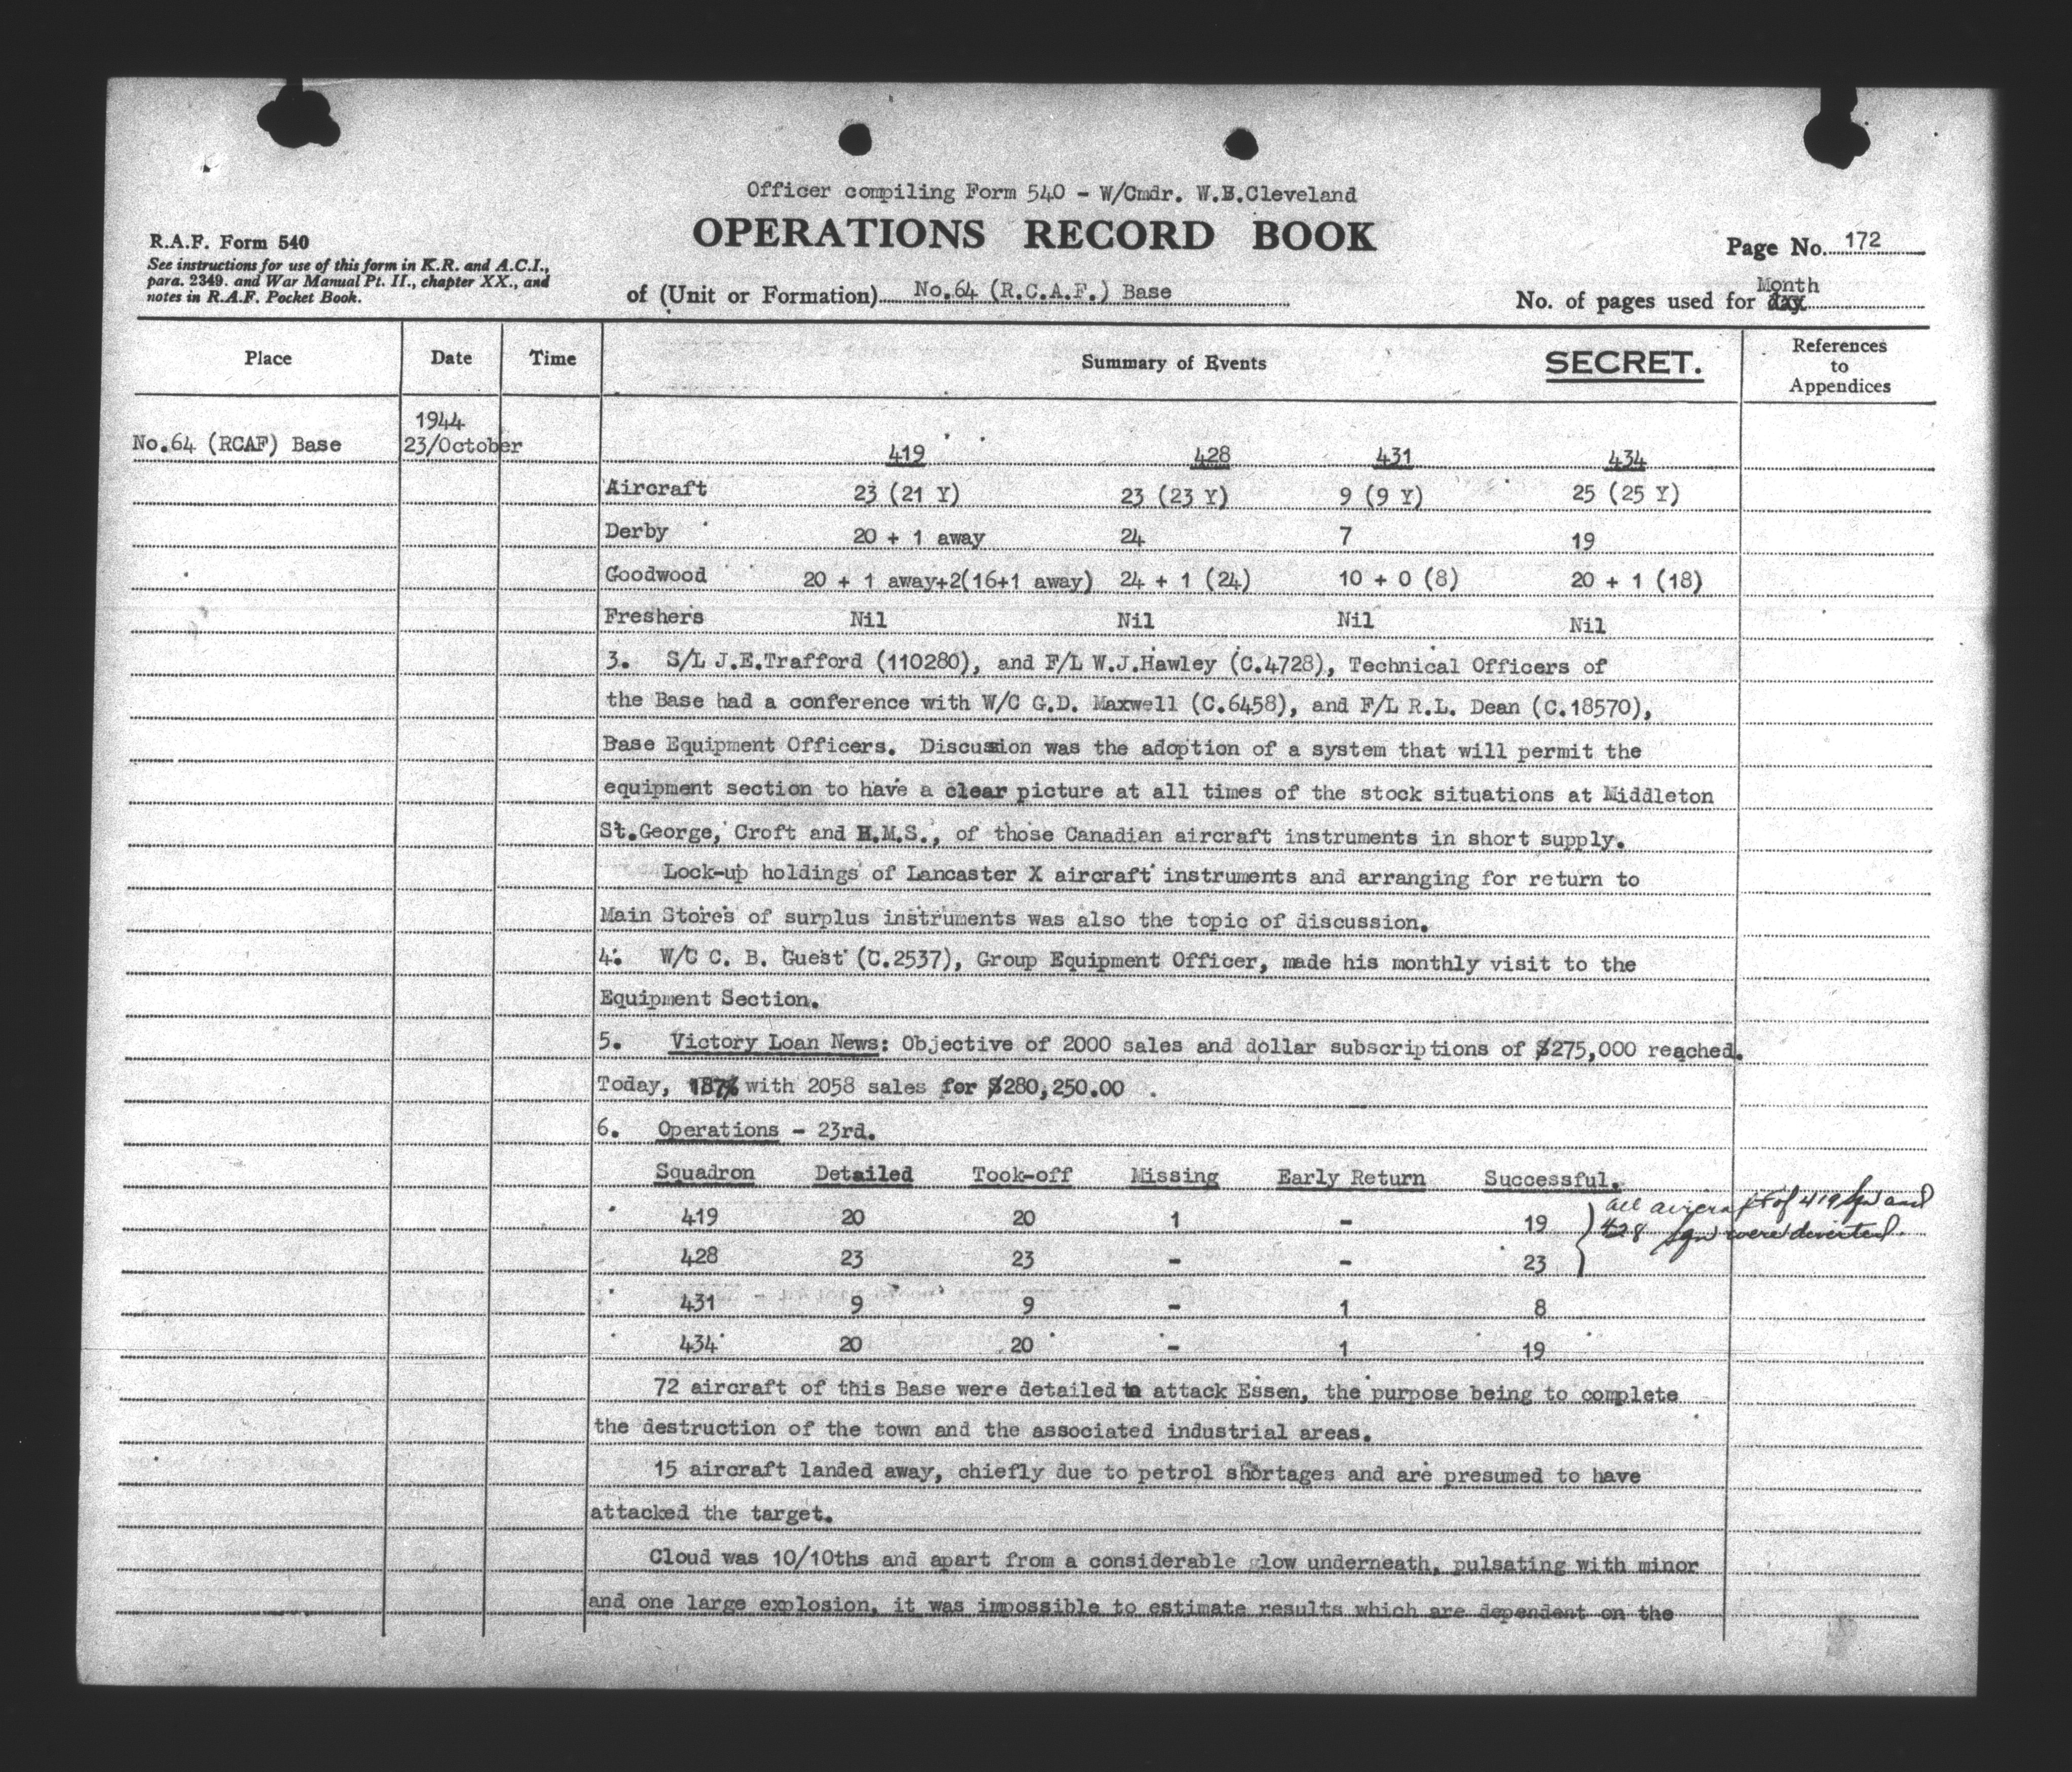 Officer compiling Form 540 - W/Cmdr. W.B.Cleveland
OPERATIONS RECORD BOOK
R.A.F. Form 540
See instructions for use of this form in K.R. and A.C.I.,
para. 2349. and War Manual Pt. II., chapter XX., and
notes in R.A.F. Pocket Book.
Page No. 172
of (Unit or Formation) No.64 (R.C.A.F.) Base
Month
No. of pages used for day
Place Date Time Summary of Events SECRET. References to Appendices
1944
No.64 (RCAF) Base 23/October 419 428 431 434
Aircraft 23 (21 Y) 23 (23 Y) 9 (9 Y) 25 (25 Y)
Derby 20 + 1 away 24 7 19
Goodwood 20 + 1 away+2(16+1 away) 24 + 1 (24) 10 + 0 (8) 20 + 1 (18)
Freshers Nil Nil Nil Nil
3. S/L J.E.Trafford (110280), and F/L W.J.Hawley (C.4728), Technical Officers of
the Base had a conference with W/C G.D. Maxwell (C.6458), and F/L R.L. Dean (C.18570),
Base Equipment Officers. Discussion was the adoption of a system that will permit the
equipment section to have a clear picture at all times of the stock situations at Middleton
St.George, Croft and H.M.S., of those Canadian aircraft instruments in short supply.
Lock-up holdings of Lancaster X aircraft instruments and arranging for return to
Main Stores of surplus instruments was also the topic of discussion.
4. W/C C. B. Guest (C.2537), Group Equipment Officer, made his monthly visit to the
Equipment Section.
5. Victory Loan News: Objective of 2000 sales and dollar subscriptions of $275,000 reached.
Today, 187% with 2058 sales for $280,250.00 .
6. Operations - 23rd.
Squadron Detailed Took-off Missing Early Return Successful.
419 20 20 1 - 19 All aircraft of 419 Sqn and
428 Sqn were diverted.
428 23 23 - - 23
431 9 9 - 1 8
434 20 20 - 1 19
72 aircraft of this Base were detailed to attack Essen, the purpose being to complete
the destruction of the town and the associated industrial areas.
15 aircraft landed away, chiefly due to petrol shortages and are presumed to have
attacked the target.
Cloud was 10/10ths and apart from a considerable glow underneath, pulsating with minor
and one large explosion, it was impossible to estimate results which are dependent on the